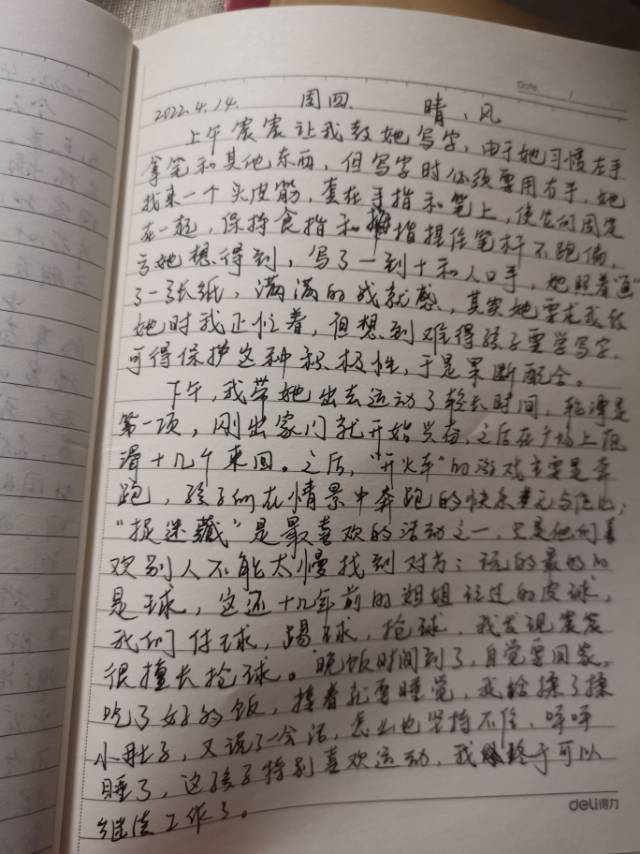 Date /
2022.4.14. 周四. 晴、风
上午震震让我教她写字,由于她习惯左手
拿笔和其他东西,但写字时必须要用右手,她
找来一个头皮筋,套在手指和笔上,使它们固定
在一起,保持食指和拇指捏住笔杆不跑偏,
亏她想得到,写了一到十和人口手,她照着画
了一张纸,满满的成就感,其实她要求我教
她时我正忙着,但想到难得孩子要学写字,
可得保护这种积极性,于是果断配合。
下午,我带她出去运动了较长时间,轮滑是
第一项,刚出家门就开始兴奋,之后在广场上
滑十几个来回。之后,“开火车”的游戏主要是奔
跑,孩子们在情景中奔跑的快乐
“捉迷藏”是最喜欢的活动之一,只是他们喜
欢别人不能太慢找到对方;玩的最多的
是球,这还十几年前的姐姐玩过的皮球,
我们传球,踢球,抢球,我发现震震
很擅长抢球。晚饭时间到了,自觉要回家,
吃了好的饭,接着就要睡觉,我给揉了揉
小肚子,又说了一会话,怎么也坚持不住,呼呼
睡了,这孩子特别喜欢运动,我终于可以
继续工作了。
deli得力